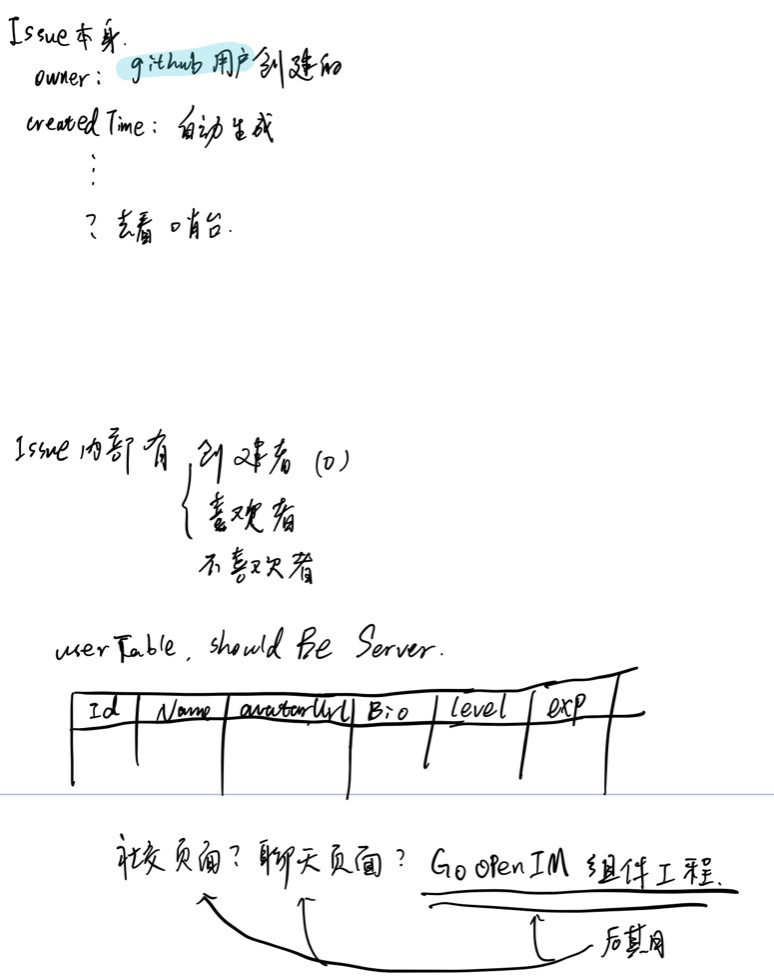 Issue本身.
owner: github 用户创建的
createdTime: 自动生成
⋮
? 去看哨台.
Issue内部有 { 创建者 (0)
喜欢者
不喜欢者
userTable, should Be Server.
Id Name avatarUrl Bio level exp
社交页面? 聊天页面? Go openIM 组件工程.
后其用